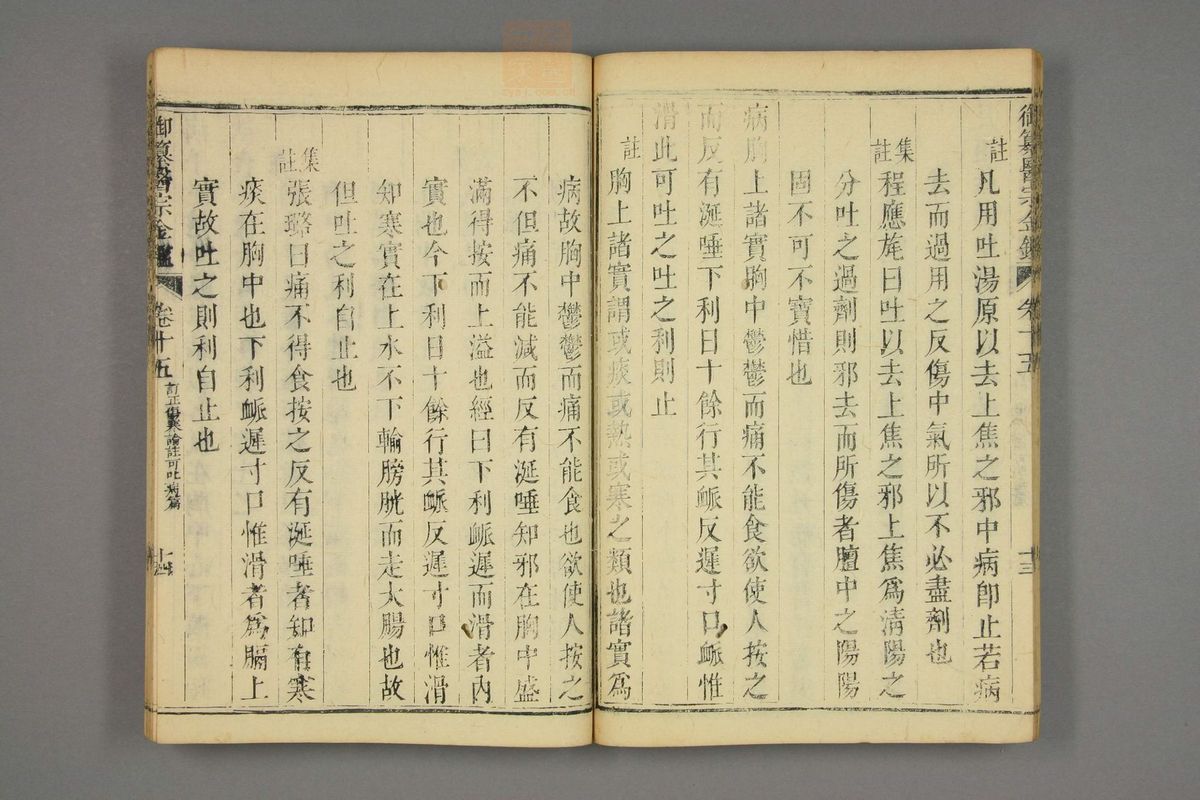 御纂醫宗金鑑 卷十五 十三
註凡用吐湯原以去上焦之邪中病卽止若病
去而過用之反傷中氣所以不必盡劑也
集註程應旄曰吐以去上焦之邪上焦爲淸陽之
分吐之過劑則邪去而所傷者膻中之陽陽
固不可不寶惜也
病胸上諸實胸中鬱鬱而痛不能食欲使人按之
而反有涎唾下利日十餘行其脈反遲寸口脈惟
滑此可吐之吐之利則止
註胸上諸實謂或痰或熱或寒之類也諸實爲
病故胸中鬱鬱而痛不能食也欲使人按之
不但痛不能減而反有涎唾知邪在胸中盛
滿得按而上溢也經曰下利脈遲而滑者內
實也今下利日十餘行其脈反遲寸口惟滑
知寒實在上水不下輸膀胱而走大腸也故
但吐之利自止也
集註張璐曰痛不得食按之反有涎唾者知有寒
痰在胸中也下利脈遲寸口惟滑者爲膈上
實故吐之則利自止也
御纂醫宗金鑑 卷十五 訂正傷寒論註可吐病篇 十四